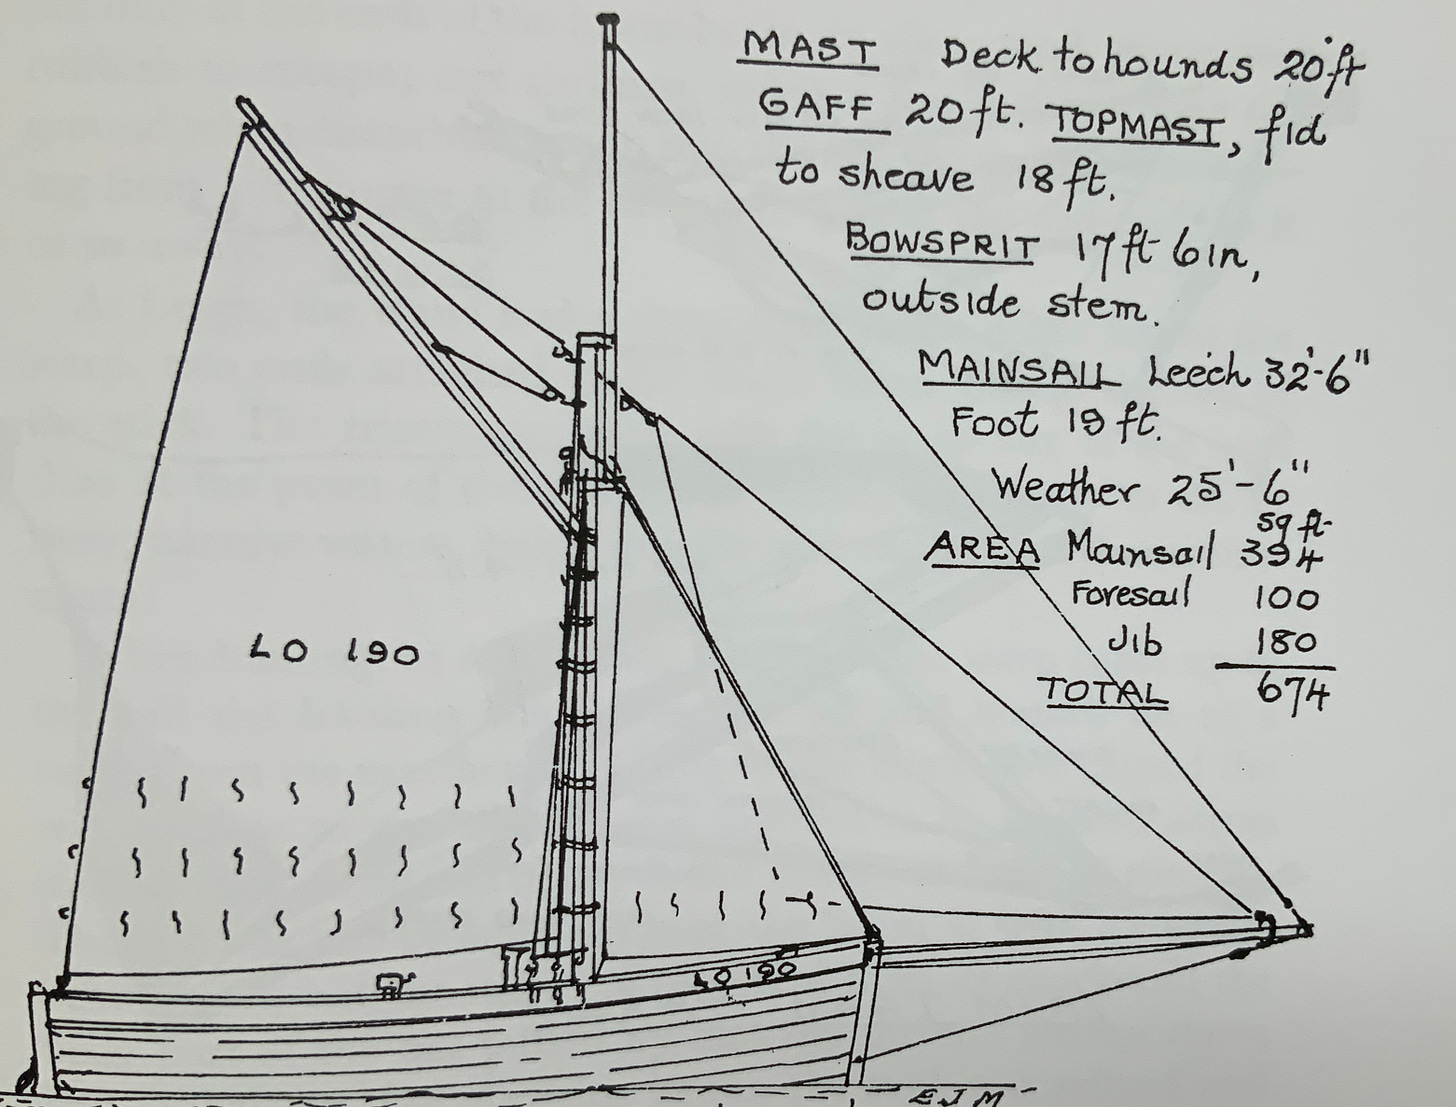 MAST Deck to hounds 20ft
GAFF 20ft. TOPMAST, fid
to sheave 18ft.
BOWSPRIT 17ft 6in,
outside stem.
MAINSAIL Leech 32'-6"
Foot 19ft.
Weather 25'-6"
sq ft
AREA Mainsail 394
Foresail 100
Jib 180
TOTAL 674
LO 190
LO 190
EJM